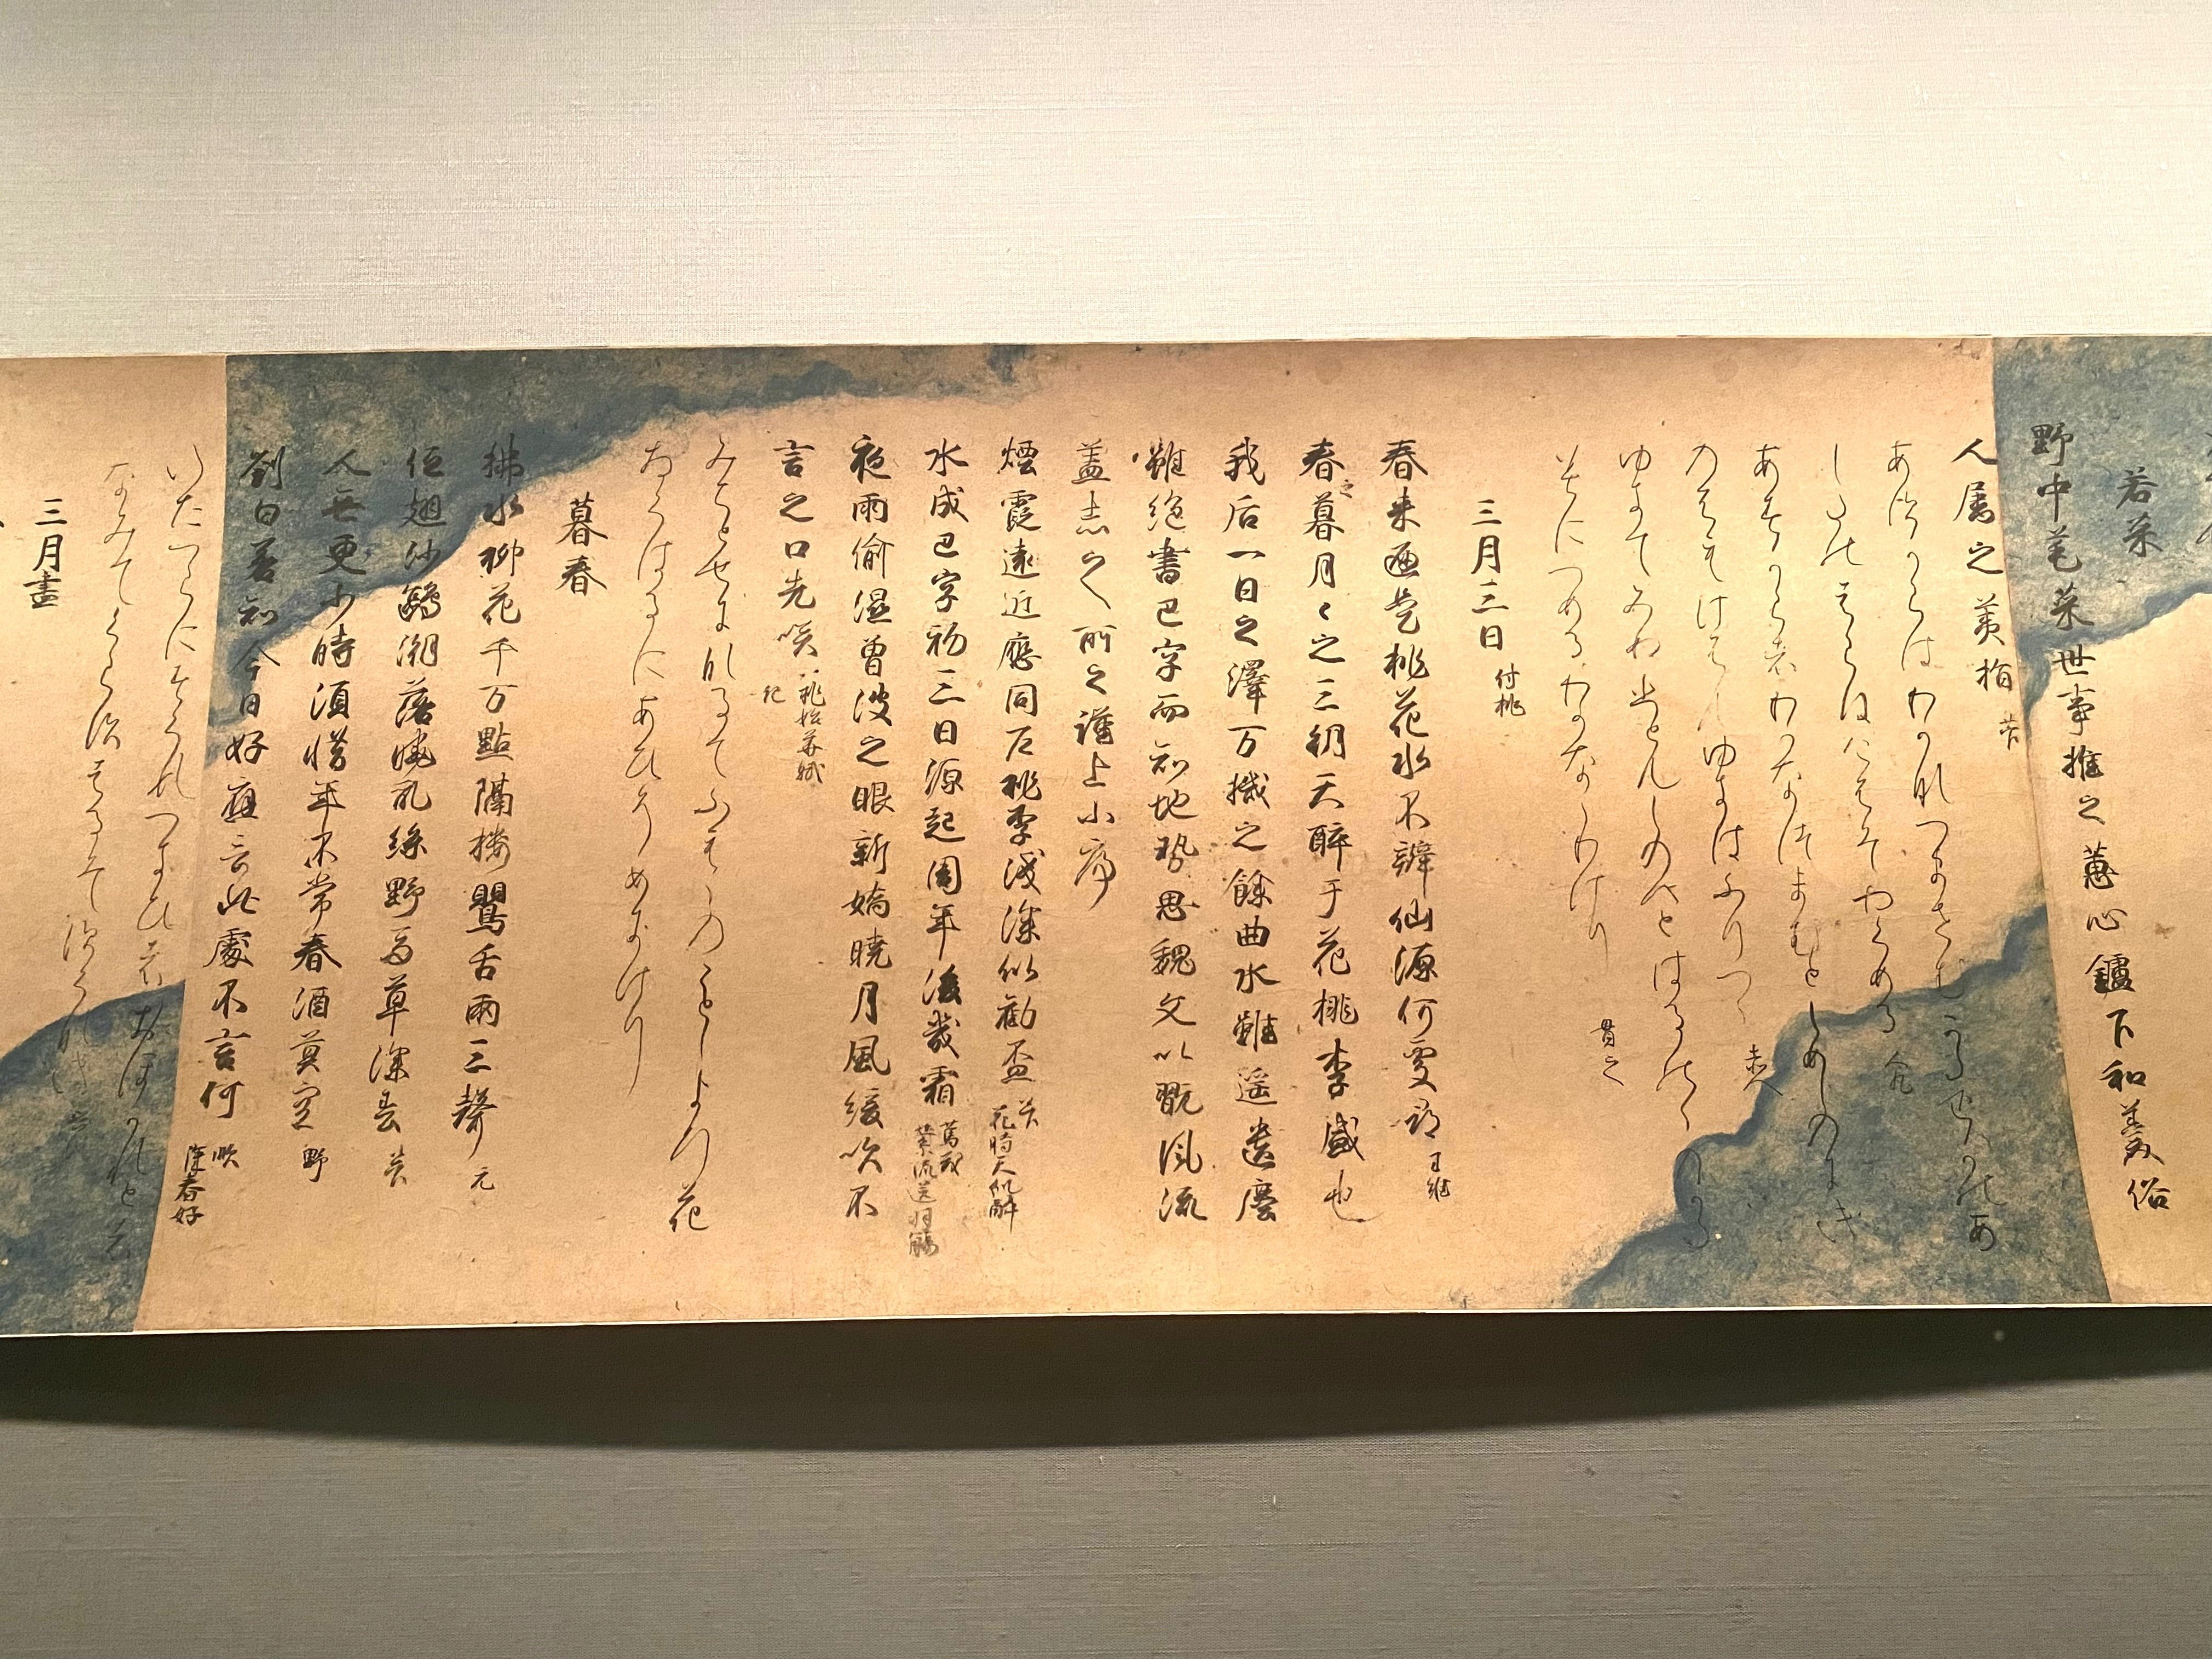 若菜
野中芼菜世事推之蕙心鑪下和羹俗
人属之荑指 菅
あすからはわかなつませむかたをかのあ
したのはらはけふそやくめる
あすからはわかなつまむとしめしのにき
のふもけふもゆきはふりつゝ 赤人
ゆきてみぬ人もしのへとはるのゝかた
みにつめるわかななりけり 貫之
三月三日 付桃
春来遍是桃花水不辨仙源何處尋 王維
春之暮月々之三朝天酔于花桃李盛也
我后一日之澤万機之餘曲水雖遥遺塵
雖絶書巴字而知地勢思魏文以翫風流
蓋志之所之謹上小序
煙霞遠近應同戸桃李浅深似勧盃 菅 花時天似酔
水成巴字初三日源起周年後幾霜 篤茂 縈流送羽觴
夜雨偷湿曾波之眼新嬌暁月風緩吹不
言之口先咲 桃始華賦 紀
みちとせになるてふもゝのことしより花
さくはるにあひそめにけり
暮春
拂水柳花千万點隔楼鸎舌兩三聲 元
低翅沙鷗潮落暁乱絲野馬草深春 菅
人無更少時須惜年不常春酒莫空 野
劉白若知今日好應言此處不言何 順 深春好
いたつらにすくるつきひはおほかれと花
みてくらすはるそすくなき
三月盡